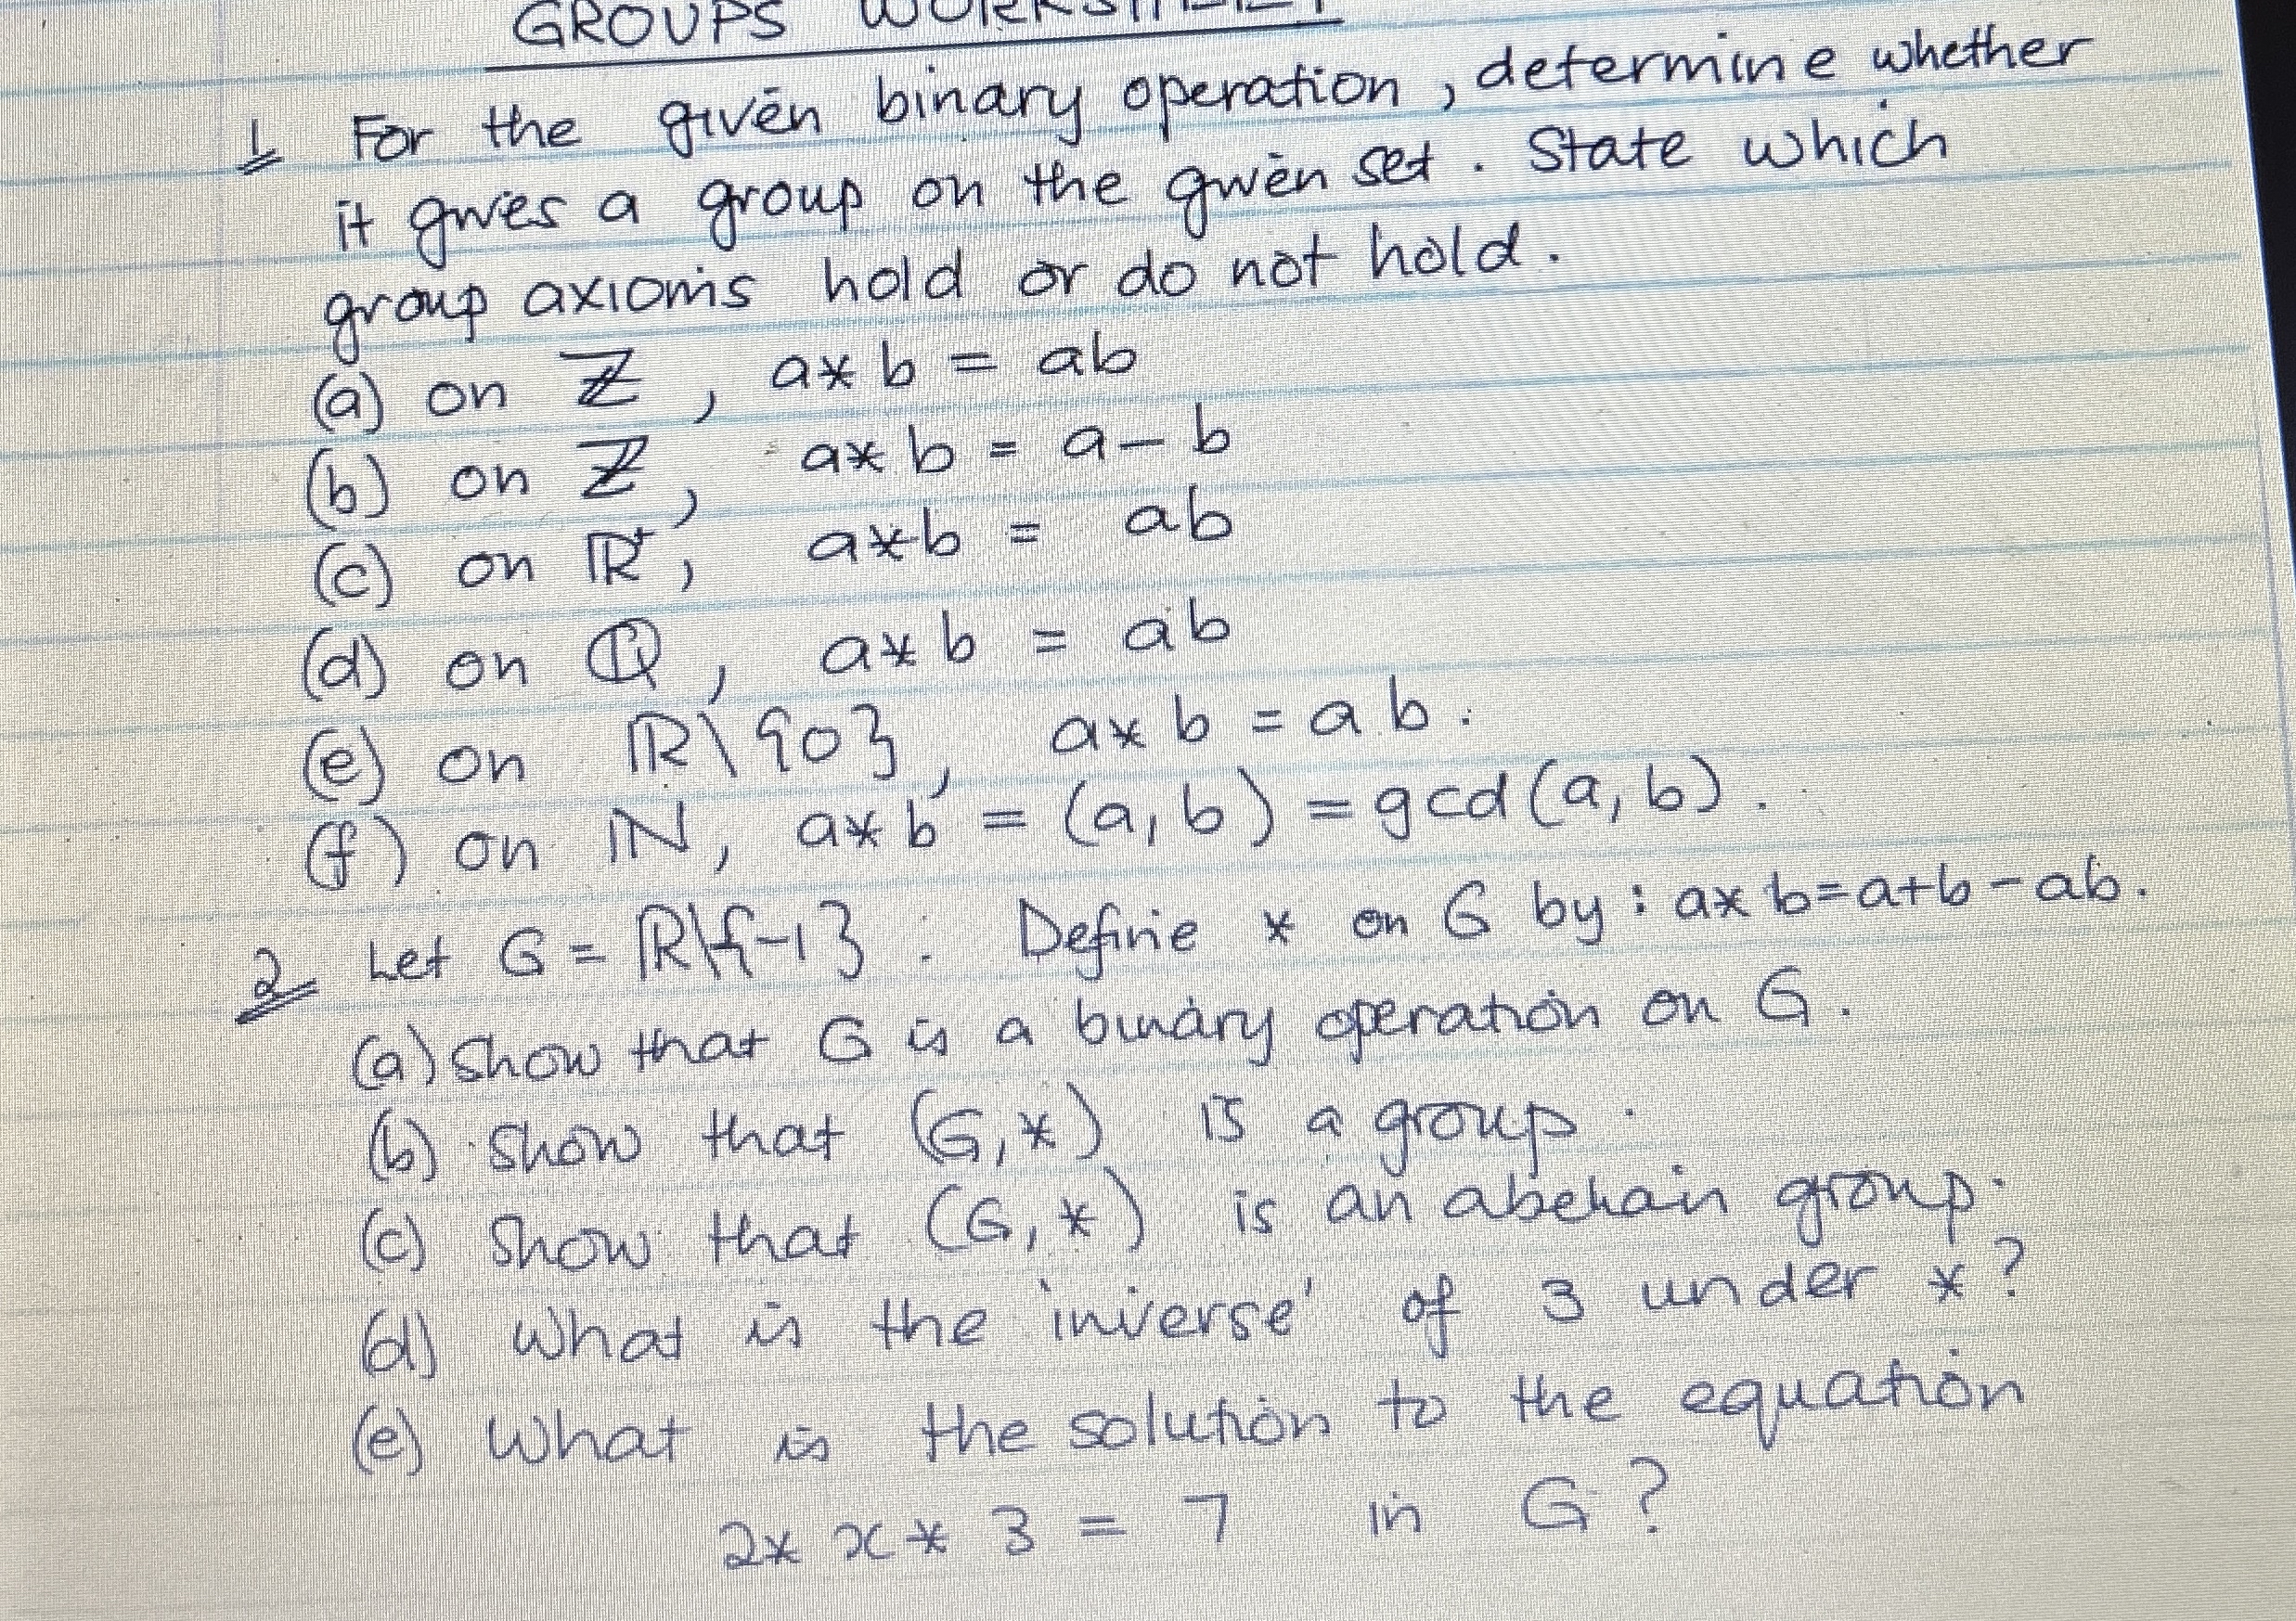 GROUPS WORKSHEET
1 For the given binary operation, determine whether
it gives a group on the given set. State which
group axioms hold or do not hold.
(a) on ℤ, a*b = ab
(b) on ℤ, a*b = a-b
(c) on ℝ⁺, a*b = ab
(d) on ℚ, a*b = ab
(e) on ℝ\{0}, a*b = ab.
(f) on ℕ, a*b = (a,b) = gcd(a,b).
2 Let G = ℝ\{-1}. Define * on G by: a*b=a+b-ab.
(a) Show that G is a binary operation on G.
(b) Show that (G,*) is a group.
(c) Show that (G,*) is an abelian group.
(d) What is the 'inverse' of 3 under *?
(e) What is the solution to the equation
2* x * 3 = 7 in G?